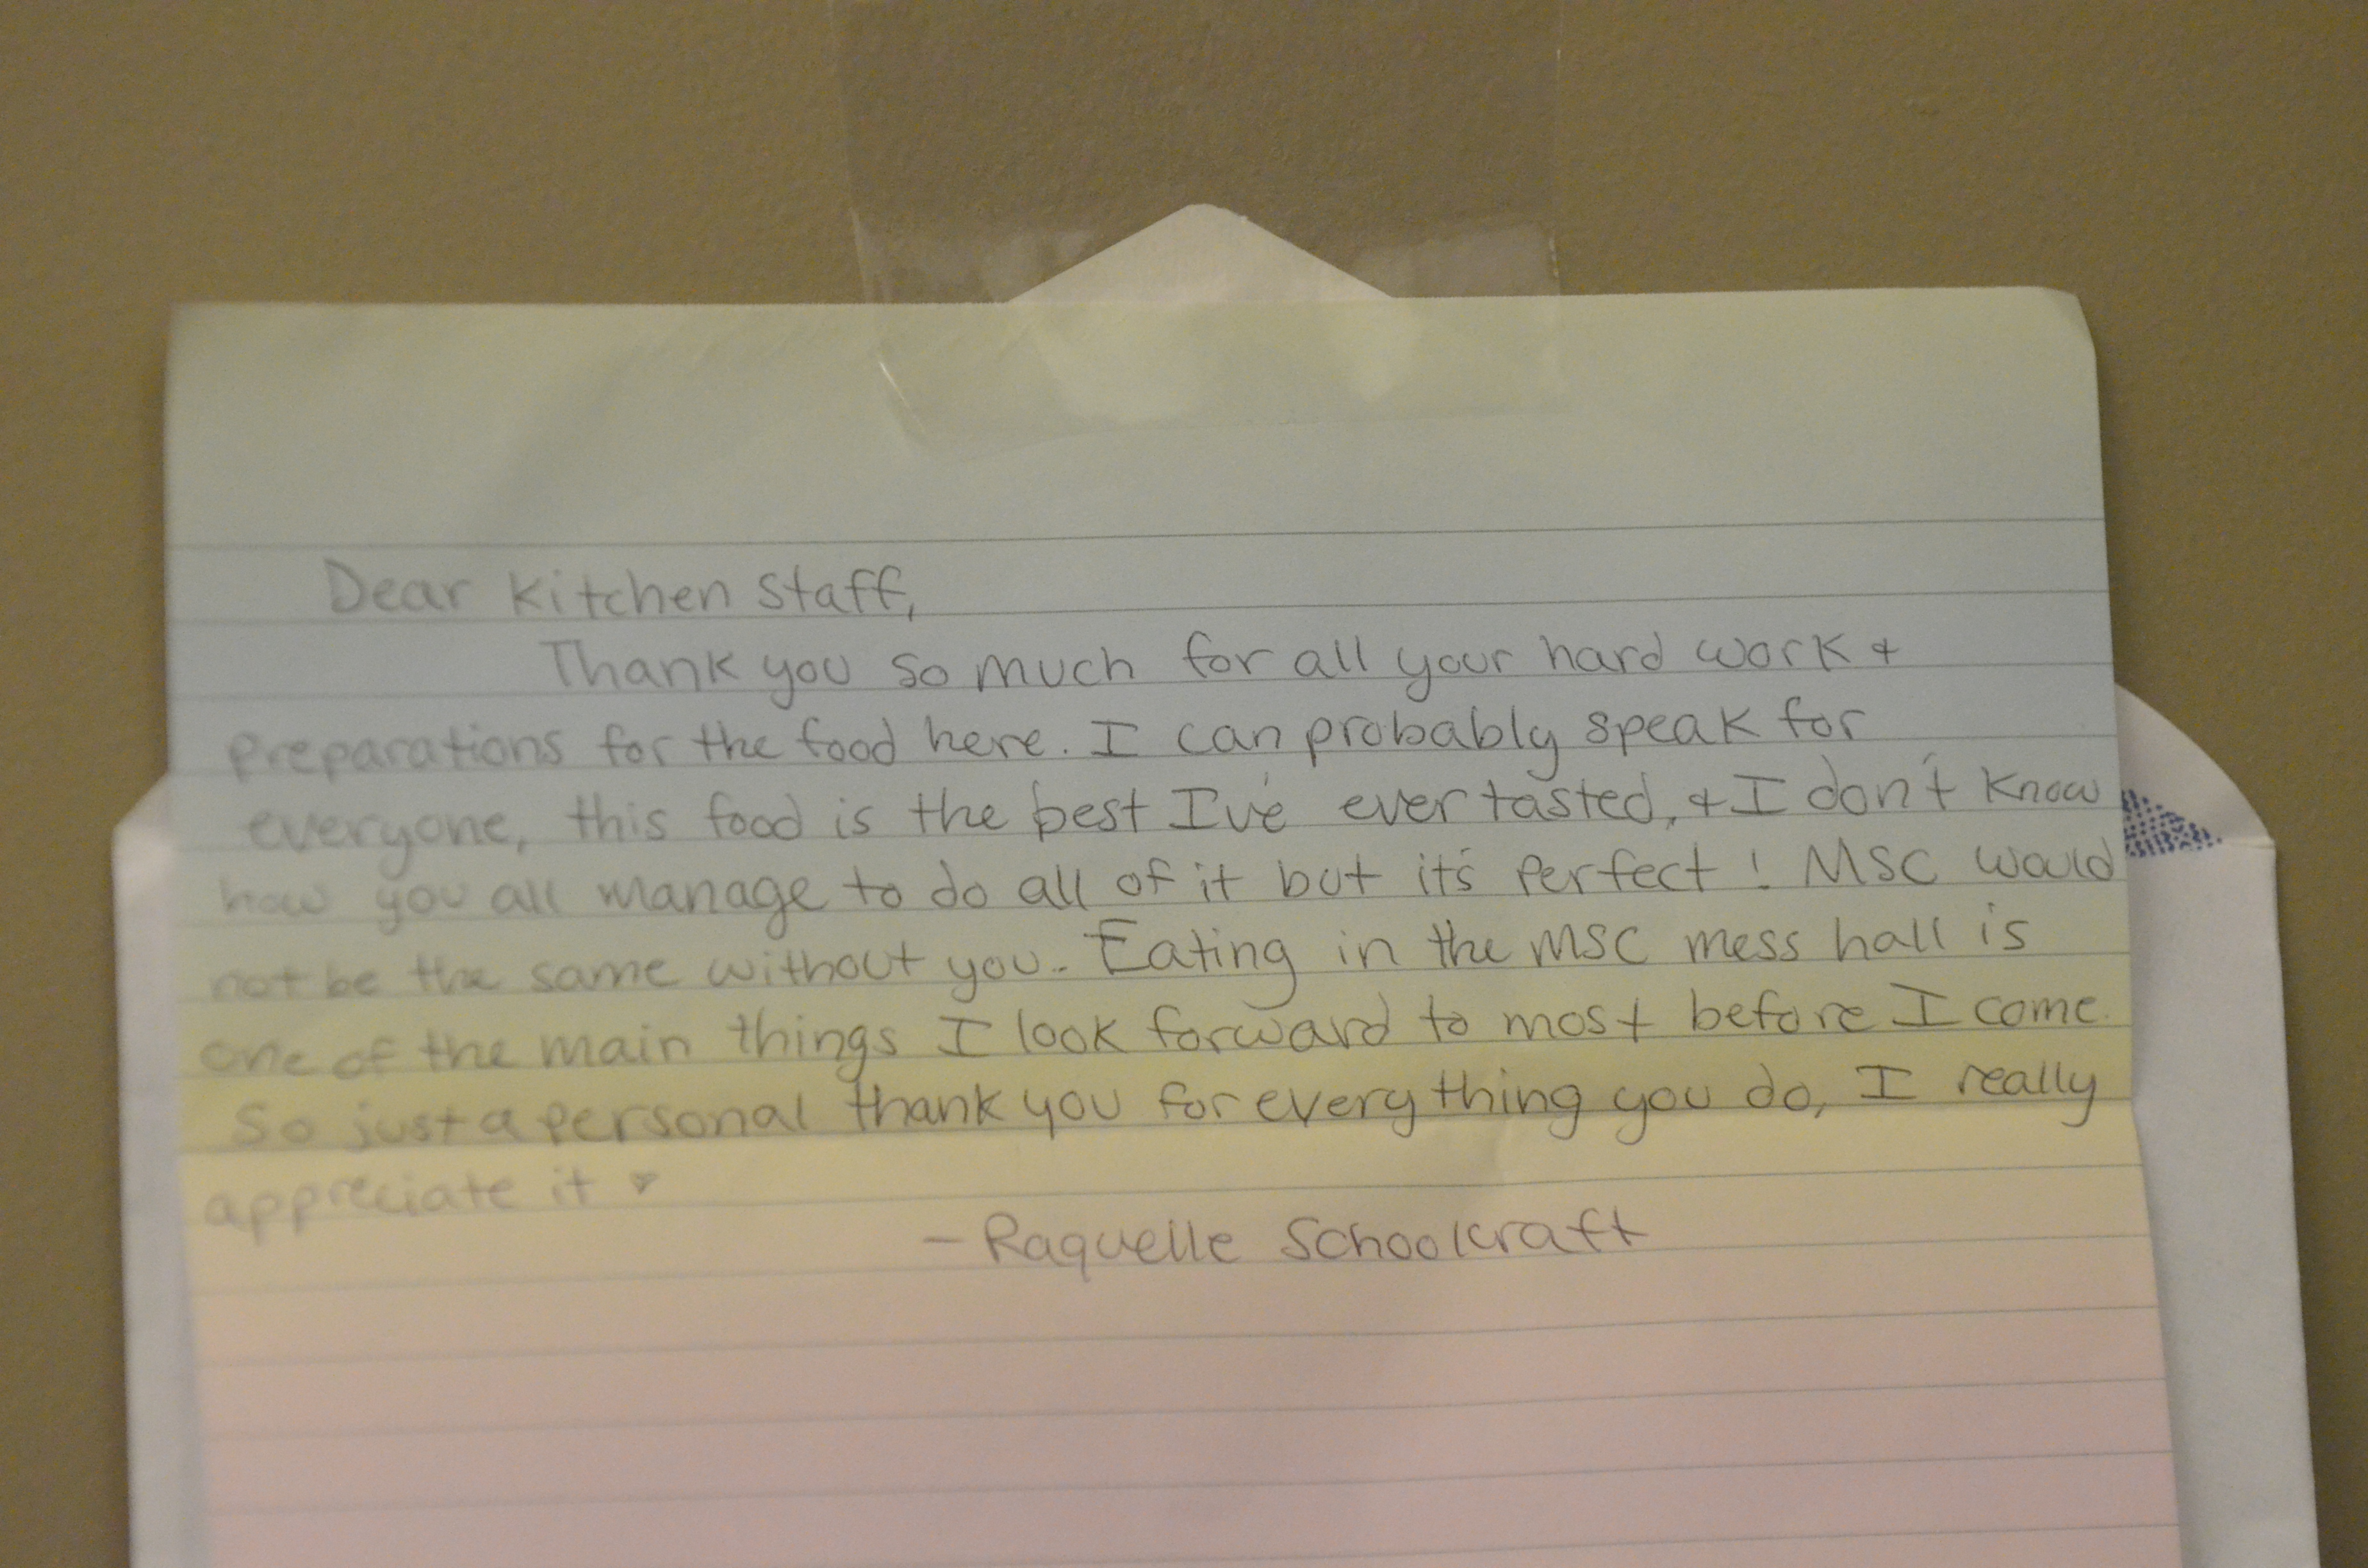 Dear Kitchen Staff,
Thank you so much for all your hard work +
preparations for the food here. I can probably speak for
everyone, this food is the best I've ever tasted, + I don't know
how you all manage to do all of it but it's perfect! MSC would
not be the same without you. Eating in the MSC mess hall is
one of the main things I look forward to most before I come.
So just a personal thank you for everything you do, I really
appreciate it ♥
- Raquelle Schoolcraft